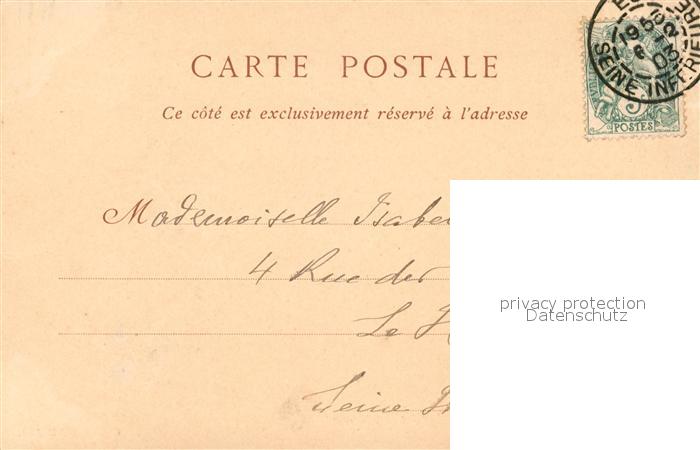 CARTE POSTALE
Ce côté est exclusivement réservé à l'adresse
19 5 03
SEINE INFERIE
5
POSTES
Mademoiselle Isabe
4 Rue des
Le H
Seine In
privacy protection
Datenschutz